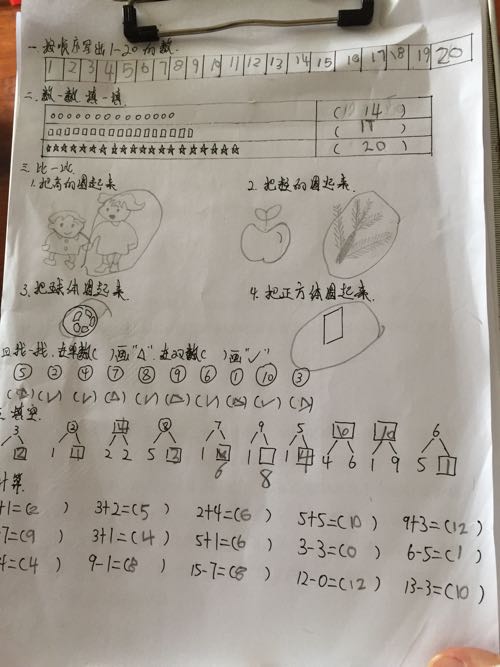 一.按顺序写出1-20的数.
1 2 3 4 5 6 7 8 9 10 11 12 13 14 15 16 17 18 19 20
二.数一数 填一填.
( 14 )
( 17 )
( 20 )
三.比一比.
1.把高的圈起来 2.把
的圈起来.
3.把球体圈起来. 4.把正方体圈起来.
四找一找,在单数( )画"△" 在双数( )画"✓"
⑤ ② ④ ⑦ ⑧ ⑨ ⑥ ① ⑩ ③
(△)(✓)(✓)(△)(✓)(△)(✓)(△)(✓)(△)
填空.
3 2 4 8 7 9 5 10 10 6
2 1 1 2 2 5 3 1 6 1 8 1 4 4 6 1 9 5 1
计算.
+1=(2) 3+2=(5) 2+4=(6) 5+5=(10) 9+3=(12)
+7=(9) 3+1=(4) 5+1=(6) 3-3=(0) 6-5=(1)
4=(4) 9-1=(8) 15-7=(8) 12-0=(12) 13-3=(10)